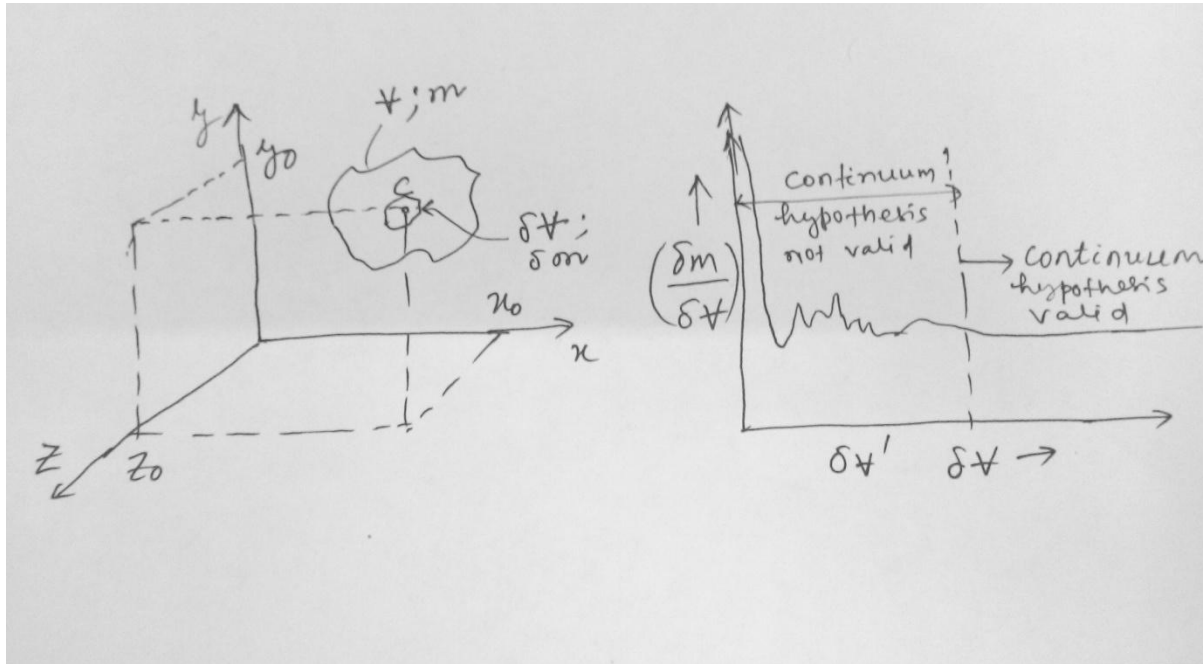 y
y₀
V̶; m
C
δV̶;
δm
x₀
x
Z
Z₀
(δm/δV̶)
↑
continuum
hypothesis
not valid
→ continuum
hypothesis
valid
δV̶'
δV̶ →